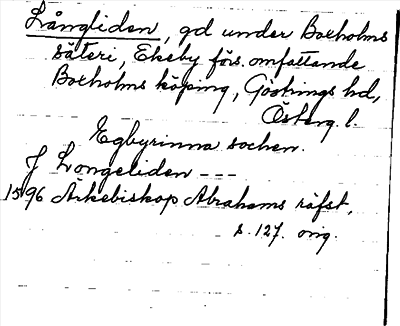 Långliden, gd under Boxholms
säteri, Ekeby förs. omfattande
Boxholms köping, Göstrings hd,
Österg. l.
Egbyrinna sochen.
J Longeliden ---
1596 Ärkebiskop Abrahams räfst,
s. 127. orig.